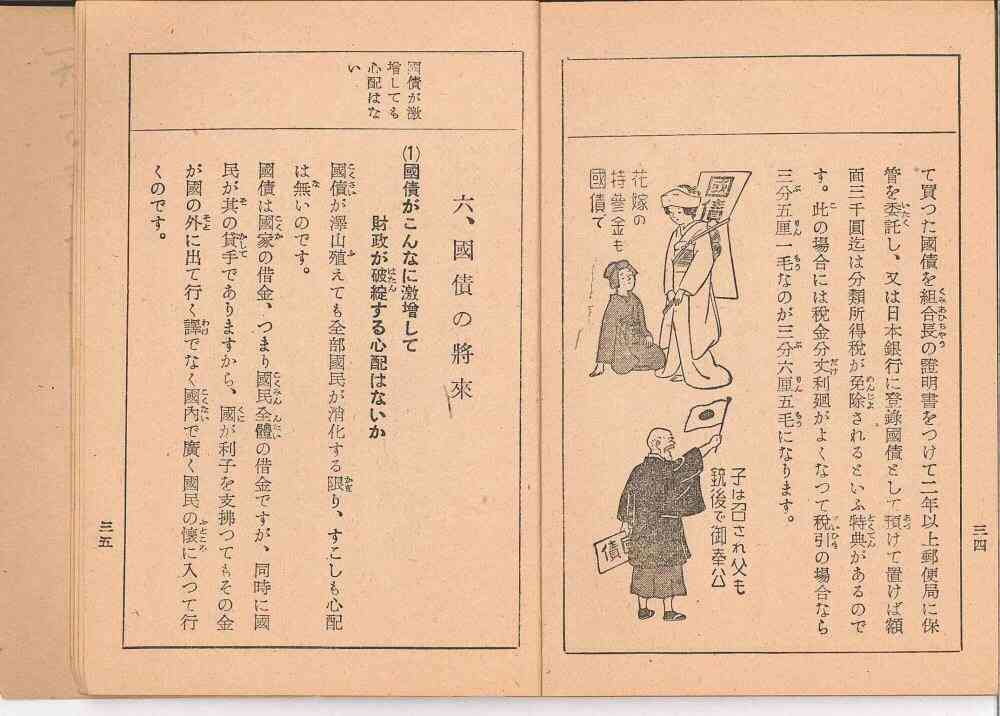 て買つた國債を組合長の證明書をつけて二年以上郵便局に保
管を委託し、又は日本銀行に登錄國債として預けて置けば額
面三千圓迄は分類所得稅が免除されるといふ特典があるので
す。此の場合には稅金分丈利廻がよくなつて稅引の場合なら
三分五厘一毛なのが三分六厘五毛になります。
國債
花嫁の
持參金も
國債で
子は召され父も
銃後で御奉公
國債
三四
國債が激
增しても
心配はな
い
六、國債の將來
(1)國債がこんなに激增して
財政が破綻する心配はないか
國債が澤山殖えても全部國民が消化する限り、すこしも心配
は無いのです。
國債は國家の借金、つまり國民全體の借金ですが、同時に國
民が其の貸手でありますから、國が利子を支拂つてもその金
が國の外に出て行く譯でなく國內で廣く國民の懷に入つて行
くのです。
三五